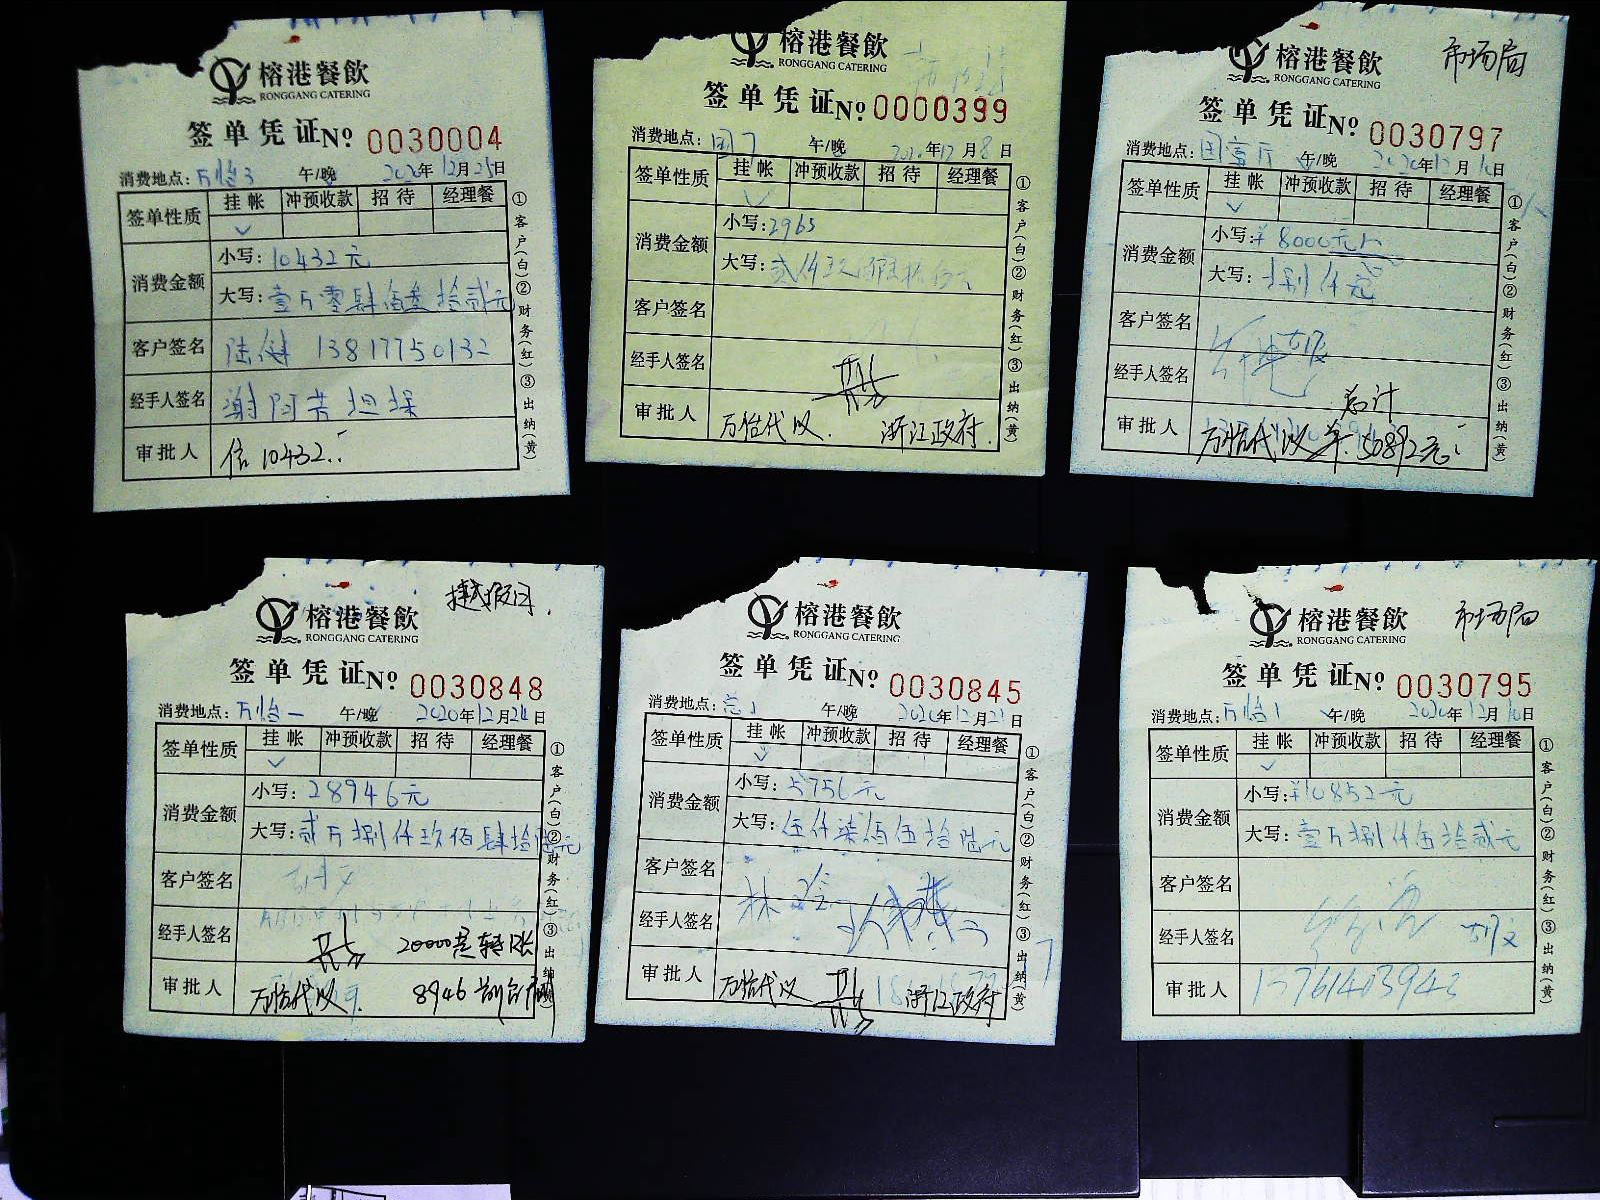 榕港餐飲
RONGGANG CATERING
签单凭证No 0030004
消费地点：万怡3 午/晚 2020年12月25日
签单性质 挂帐 冲预收款 招待 经理餐
消费金额 小写：10432元
大写：壹万零肆佰叁拾贰元
客户签名 陆 13817750132
经手人签名 谢阿芳担保
审批人 信10432.
①客户（白）②财务（红）③出纳（黄）
榕港餐飲
RONGGANG CATERING
签单凭证No 0000399
消费地点： 午/晚 2020年12月8日
签单性质 挂帐 冲预收款 招待 经理餐
消费金额 小写：2965
大写：贰仟玖佰陆拾伍元
客户签名
经手人签名
审批人 万怡代议. 浙江政府.
①客户（白）②财务（红）③出纳（黄）
市场局
榕港餐飲
RONGGANG CATERING
签单凭证No 0030797
消费地点：国宴厅 午/晚 2020年12月10日
签单性质 挂帐 冲预收款 招待 经理餐
消费金额 小写：¥8000元
大写：捌仟元
客户签名
经手人签名 总计
审批人 万怡代议 50892元
①客户（白）②财务（红）③出纳（黄）
榕港餐飲
RONGGANG CATERING
签单凭证No 0030848
消费地点：万怡一 午/晚 2020年12月24日
签单性质 挂帐 冲预收款 招待 经理餐
消费金额 小写：28946元
大写：贰万捌仟玖佰肆拾陆元
客户签名 胡文
经手人签名 20000 转账
审批人 万怡代议. 8946
①客户（白）②财务（红）③出纳（黄）
榕港餐飲
RONGGANG CATERING
签单凭证No 0030845
消费地点： 午/晚 2020年12月21日
签单性质 挂帐 冲预收款 招待 经理餐
消费金额 小写：5756元
大写：伍仟柒佰伍拾陆元
客户签名 林
经手人签名
审批人 万怡代议 浙江政府
①客户（白）②财务（红）③出纳（黄）
市场局
榕港餐飲
RONGGANG CATERING
签单凭证No 0030795
消费地点：万怡1 午/晚 2020年12月10日
签单性质 挂帐 冲预收款 招待 经理餐
消费金额 小写：¥10852元
大写：壹万捌仟伍拾贰元
客户签名
经手人签名 胡文
审批人
①客户（白）②财务（红）③出纳（黄）